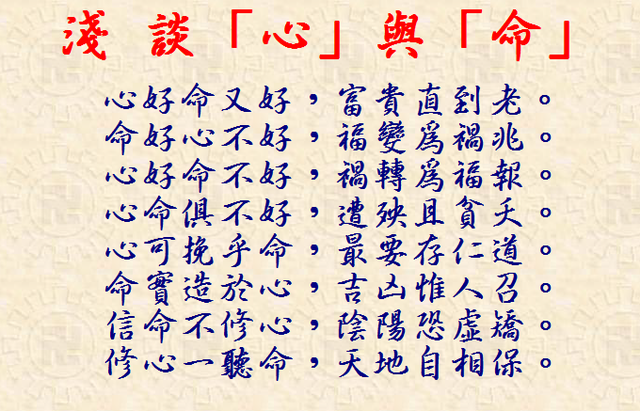 淺談「心」與「命」
心好命又好，富貴直到老。
命好心不好，福變為禍兆。
心好命不好，禍轉為福報。
心命俱不好，遭殃且貧夭。
心可挽乎命，最要存仁道。
命實造於心，吉凶惟人召。
信命不修心，陰陽恐虛矯。
修心一聽命，天地自相保。